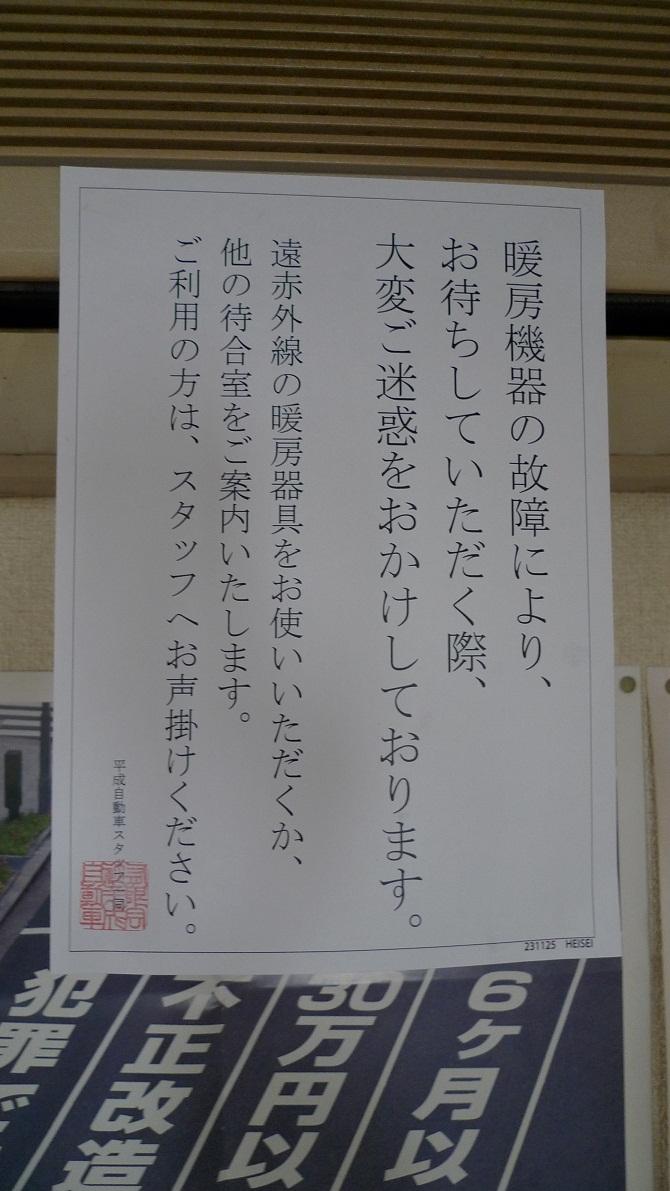 暖房機器の故障により、
お待ちしていただく際、
大変ご迷惑をおかけしております。
遠赤外線の暖房器具をお使いいただくか、
他の待合室をご案内いたします。
ご利用の方は、スタッフへお声掛けください。
平成自動車スタッフ一同
231125 HEISEI
6ヶ月以
30万円以
不正改造
犯罪で